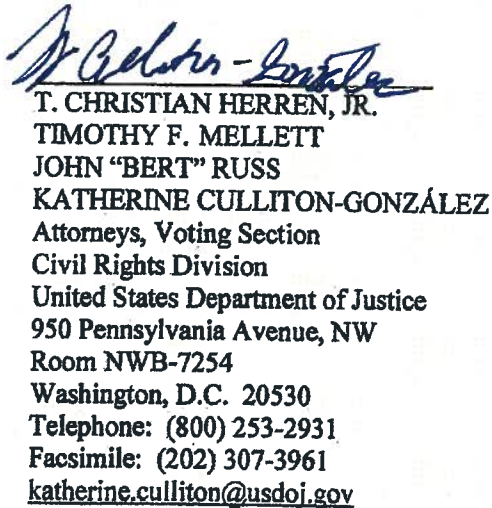 K Culliton-González
T. CHRISTIAN HERREN, JR.
TIMOTHY F. MELLETT
JOHN “BERT” RUSS
KATHERINE CULLITON-GONZÁLEZ
Attorneys, Voting Section
Civil Rights Division
United States Department of Justice
950 Pennsylvania Avenue, NW
Room NWB-7254
Washington, D.C.  20530
Telephone:  (800) 253-2931
Facsimile:  (202) 307-3961
katherine.culliton@usdoj.gov